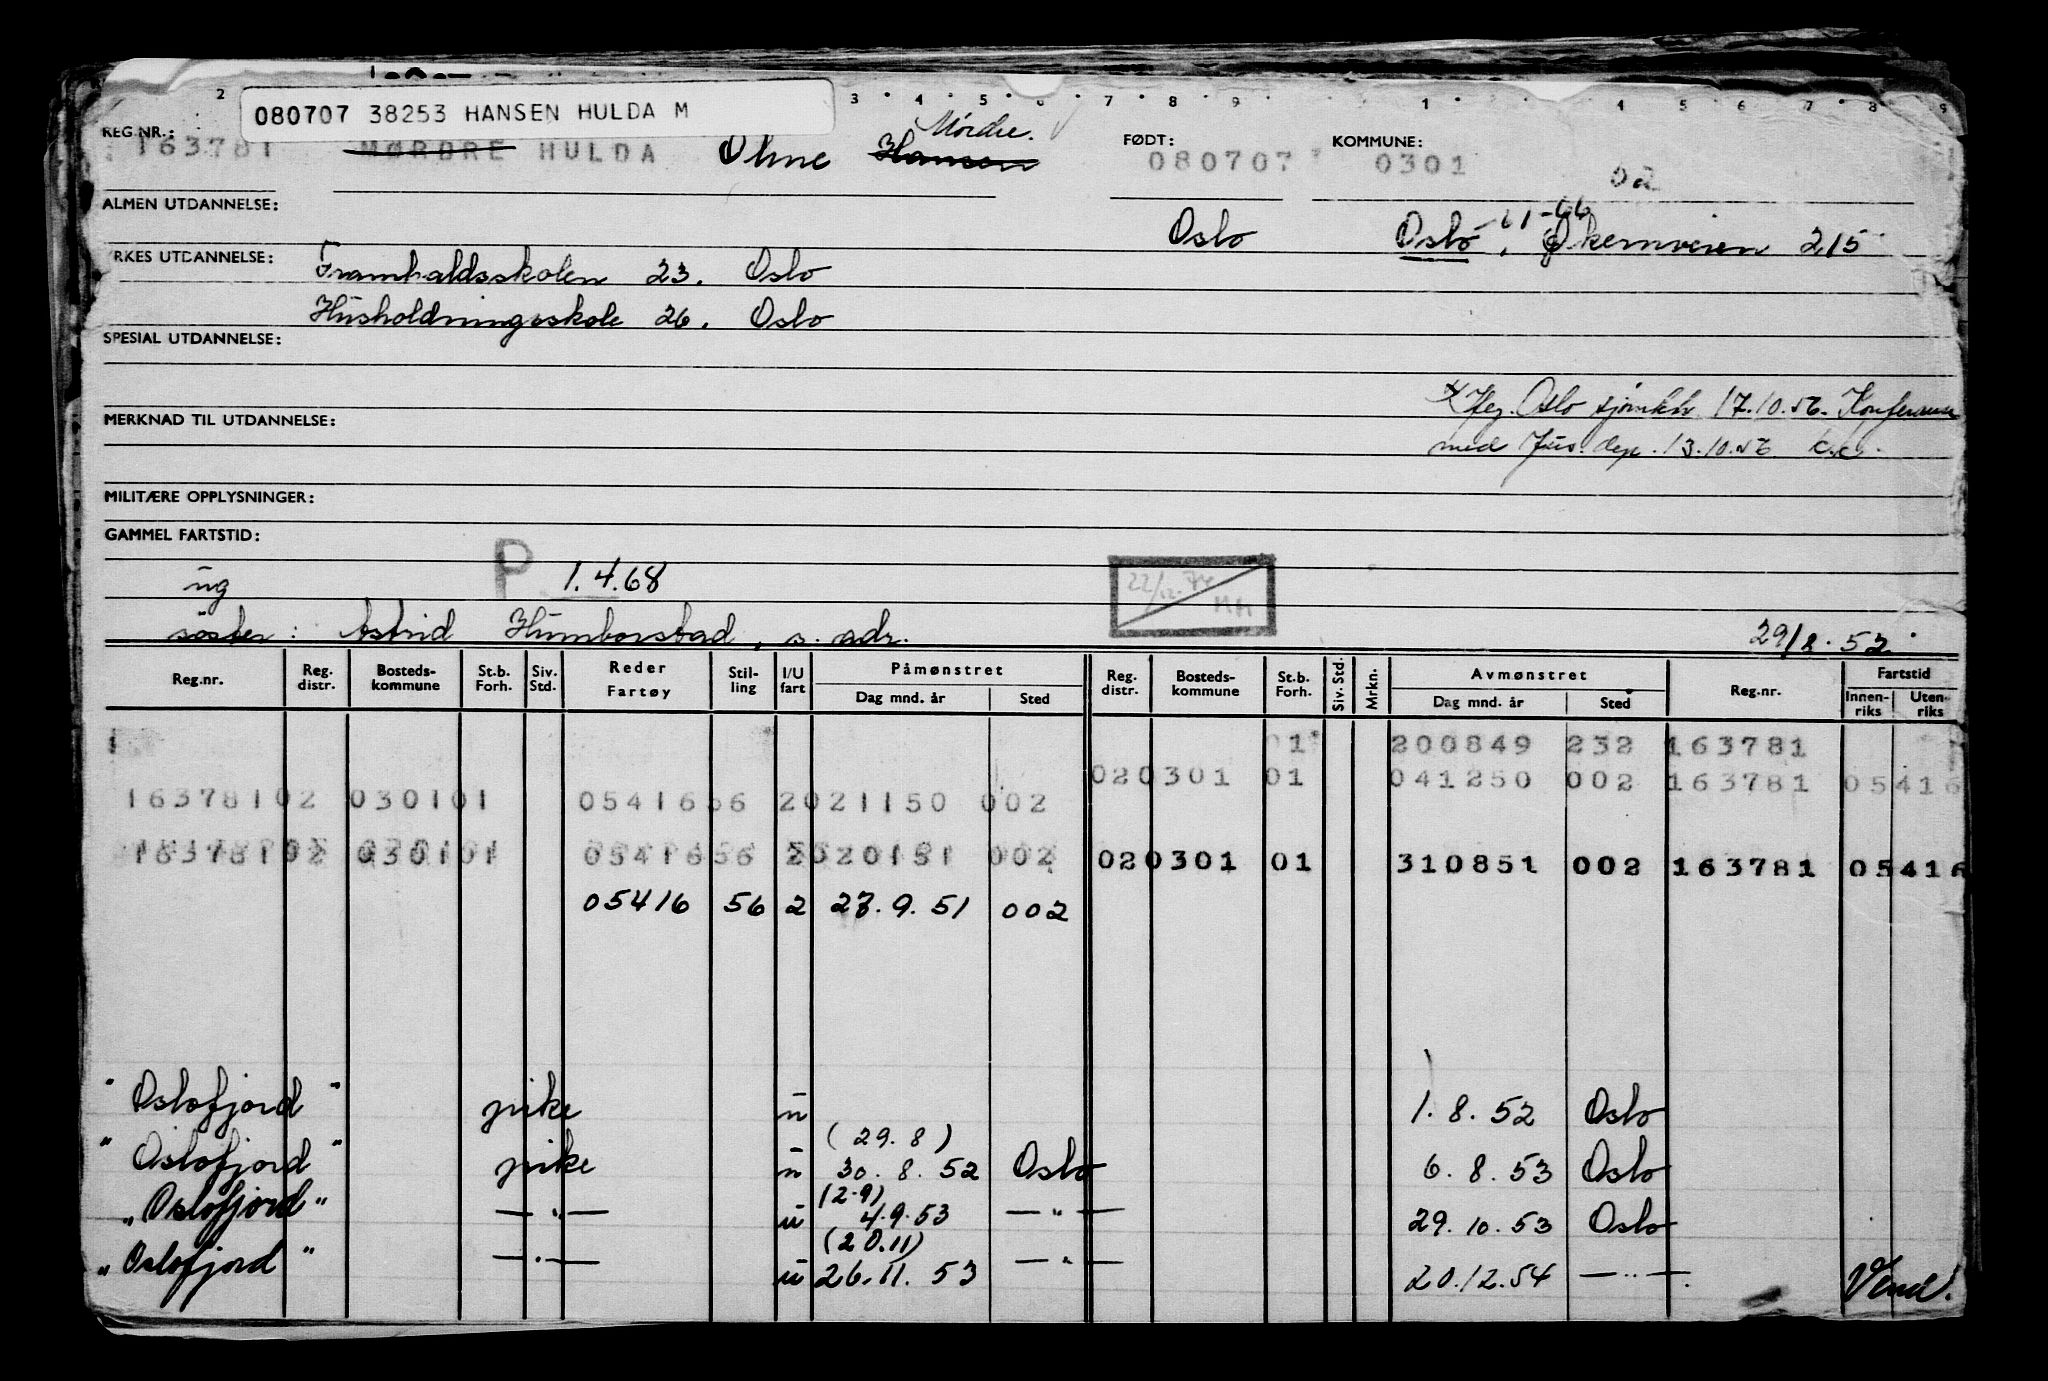 2 3 4 5 6 7 8 9 1 4 5 6 7 8 9
080707 38253 HANSEN HULDA M
Mørdre.
REG.NR.: FØDT: KOMMUNE:
163781 MØRDRE HULDA Oline Hansen 080707 0301
02
ALMEN UTDANNELSE:
Oslo Oslo, Økernveien 215
YRKES UTDANNELSE:
Framhaldsskolen 23. Oslo
Husholdningsskole 26. Oslo
SPESIAL UTDANNELSE:
Oslo sjømktr 17.10.56. Konferanse
MERKNAD TIL UTDANNELSE:
med Jus. dep. 13.10.56
MILITÆRE OPPLYSNINGER:
GAMMEL FARTSTID:
ug P 1.4.68 22/12.74 MM
søster: Astrid Humborstad, s. adr. 29/8.52
Reg.nr. Reg. distr. Bosteds-kommune St.b. Forh. Siv. Std. Reder Fartøy Stil-ling I/U fart Påmønstret Dag mnd. år Sted Reg. distr. Bosteds-kommune St.b. Forh. Siv. Std. Mrkn. Avmønstret Dag mnd. år Sted Reg.nr. Fartstid Innen-riks Uten-riks
01 200849 232 163781
020301 01 041250 002 163781 05416
16378102 030101 0541656 2021150 002
16378102 030101 0541656 2020151 002 020301 01 310851 002 163781 05416
05416 56 2 27.9.51 002
"Oslofjord" pike u 1.8.52 Oslo
(29.8)
"Oslofjord" pike u 30.8.52 Oslo 6.8.53 Oslo
(2.9)
"Oslofjord" —"— u 4.9.53 —"— 29.10.53 Oslo
(20.11)
"Oslofjord" —"— u 26.11.53 —"— 20.12.54 —"— Vend!